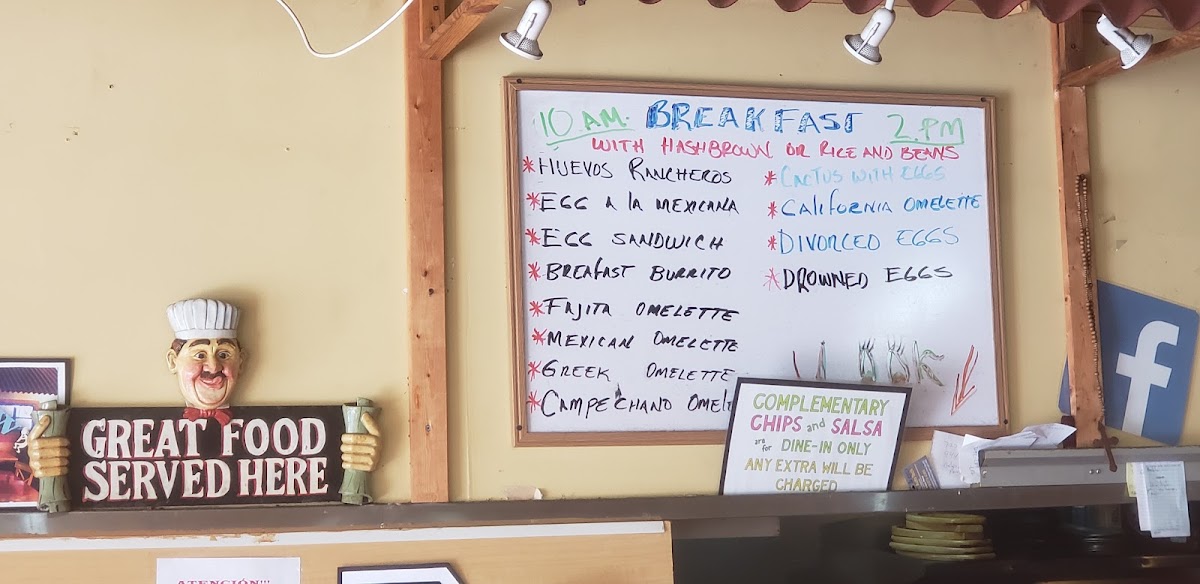 10 AM. BREAKFAST 2.PM
WITH HASHBROWN OR RICE AND BEANS
*HUEVOS RANCHEROS
*EGG A LA MEXICANA
*EGG SANDWICH
*BREAFAST BURRITO
*FAJITA OMELETTE
*MEXICAN OMELETTE
*GREEK OMELETTE
*CAMPECHANO
*CACTUS WITH EGGS
*CALIFORNIA OMELETTE
*DIVORCED EGGS
*DROWNED EGGS
COMPLEMENTARY
CHIPS and SALSA
are for DINE-IN ONLY
ANY EXTRA WILL BE
CHARGED
GREAT FOOD
SERVED HERE
f
ATENCIÓN!!!